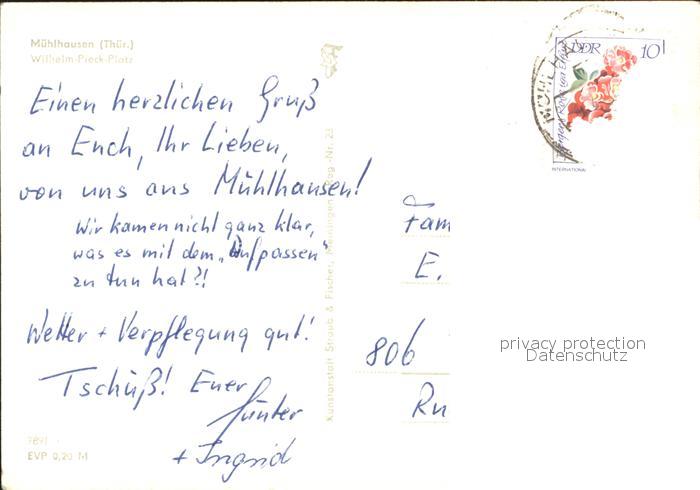 Mühlhausen (Thür.)
Wilhelm-Pieck-Platz
Einen herzlichen Gruß
an Euch, Ihr Lieben,
von uns aus Mühlhausen!
Wir kamen nicht ganz klar,
was es mit dem „Aufpassen“
zu tun hat?!
Wetter + Verpflegung gut!
Tschüß! Euer
Günter
+ Ingrid
EVP 0,20 M
Kunstanstalt Straub & Fischer, Meiningen Reg.-Nr. 23
DDR 10
INTERNATIONAL
MÜHLH
Fam
E.
806
Ru
privacy protection
Datenschutz